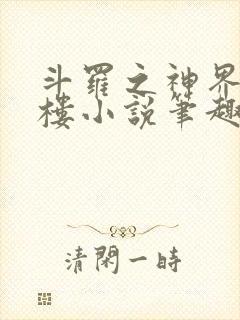 斗羅之神界
樓小說筆趣
清閑一時